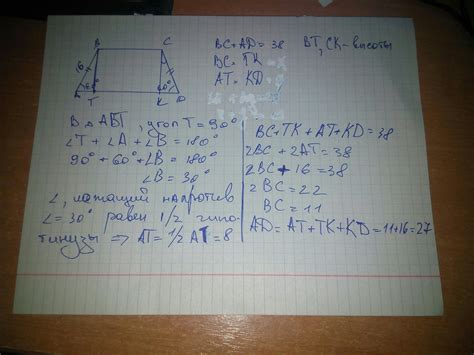 B C
16
60° 60°
A T K D
BC+AD=38
BC= TK
AT= KD
BT, CK-высоты
В ΔABT, угол T=90°
∠T+∠A+∠B=180°
90°+60°+∠B=180°
∠B=30°
∠, лежащий напротив
∠=30° равен 1/2 гипо-
тинузы ⇒ AT=1/2 AT=8
BC+TK+AT+KD=38
2BC+2AT=38
2BC+16=38
2BC=22
BC=11
AD=AT+TK+KD=11+16=27